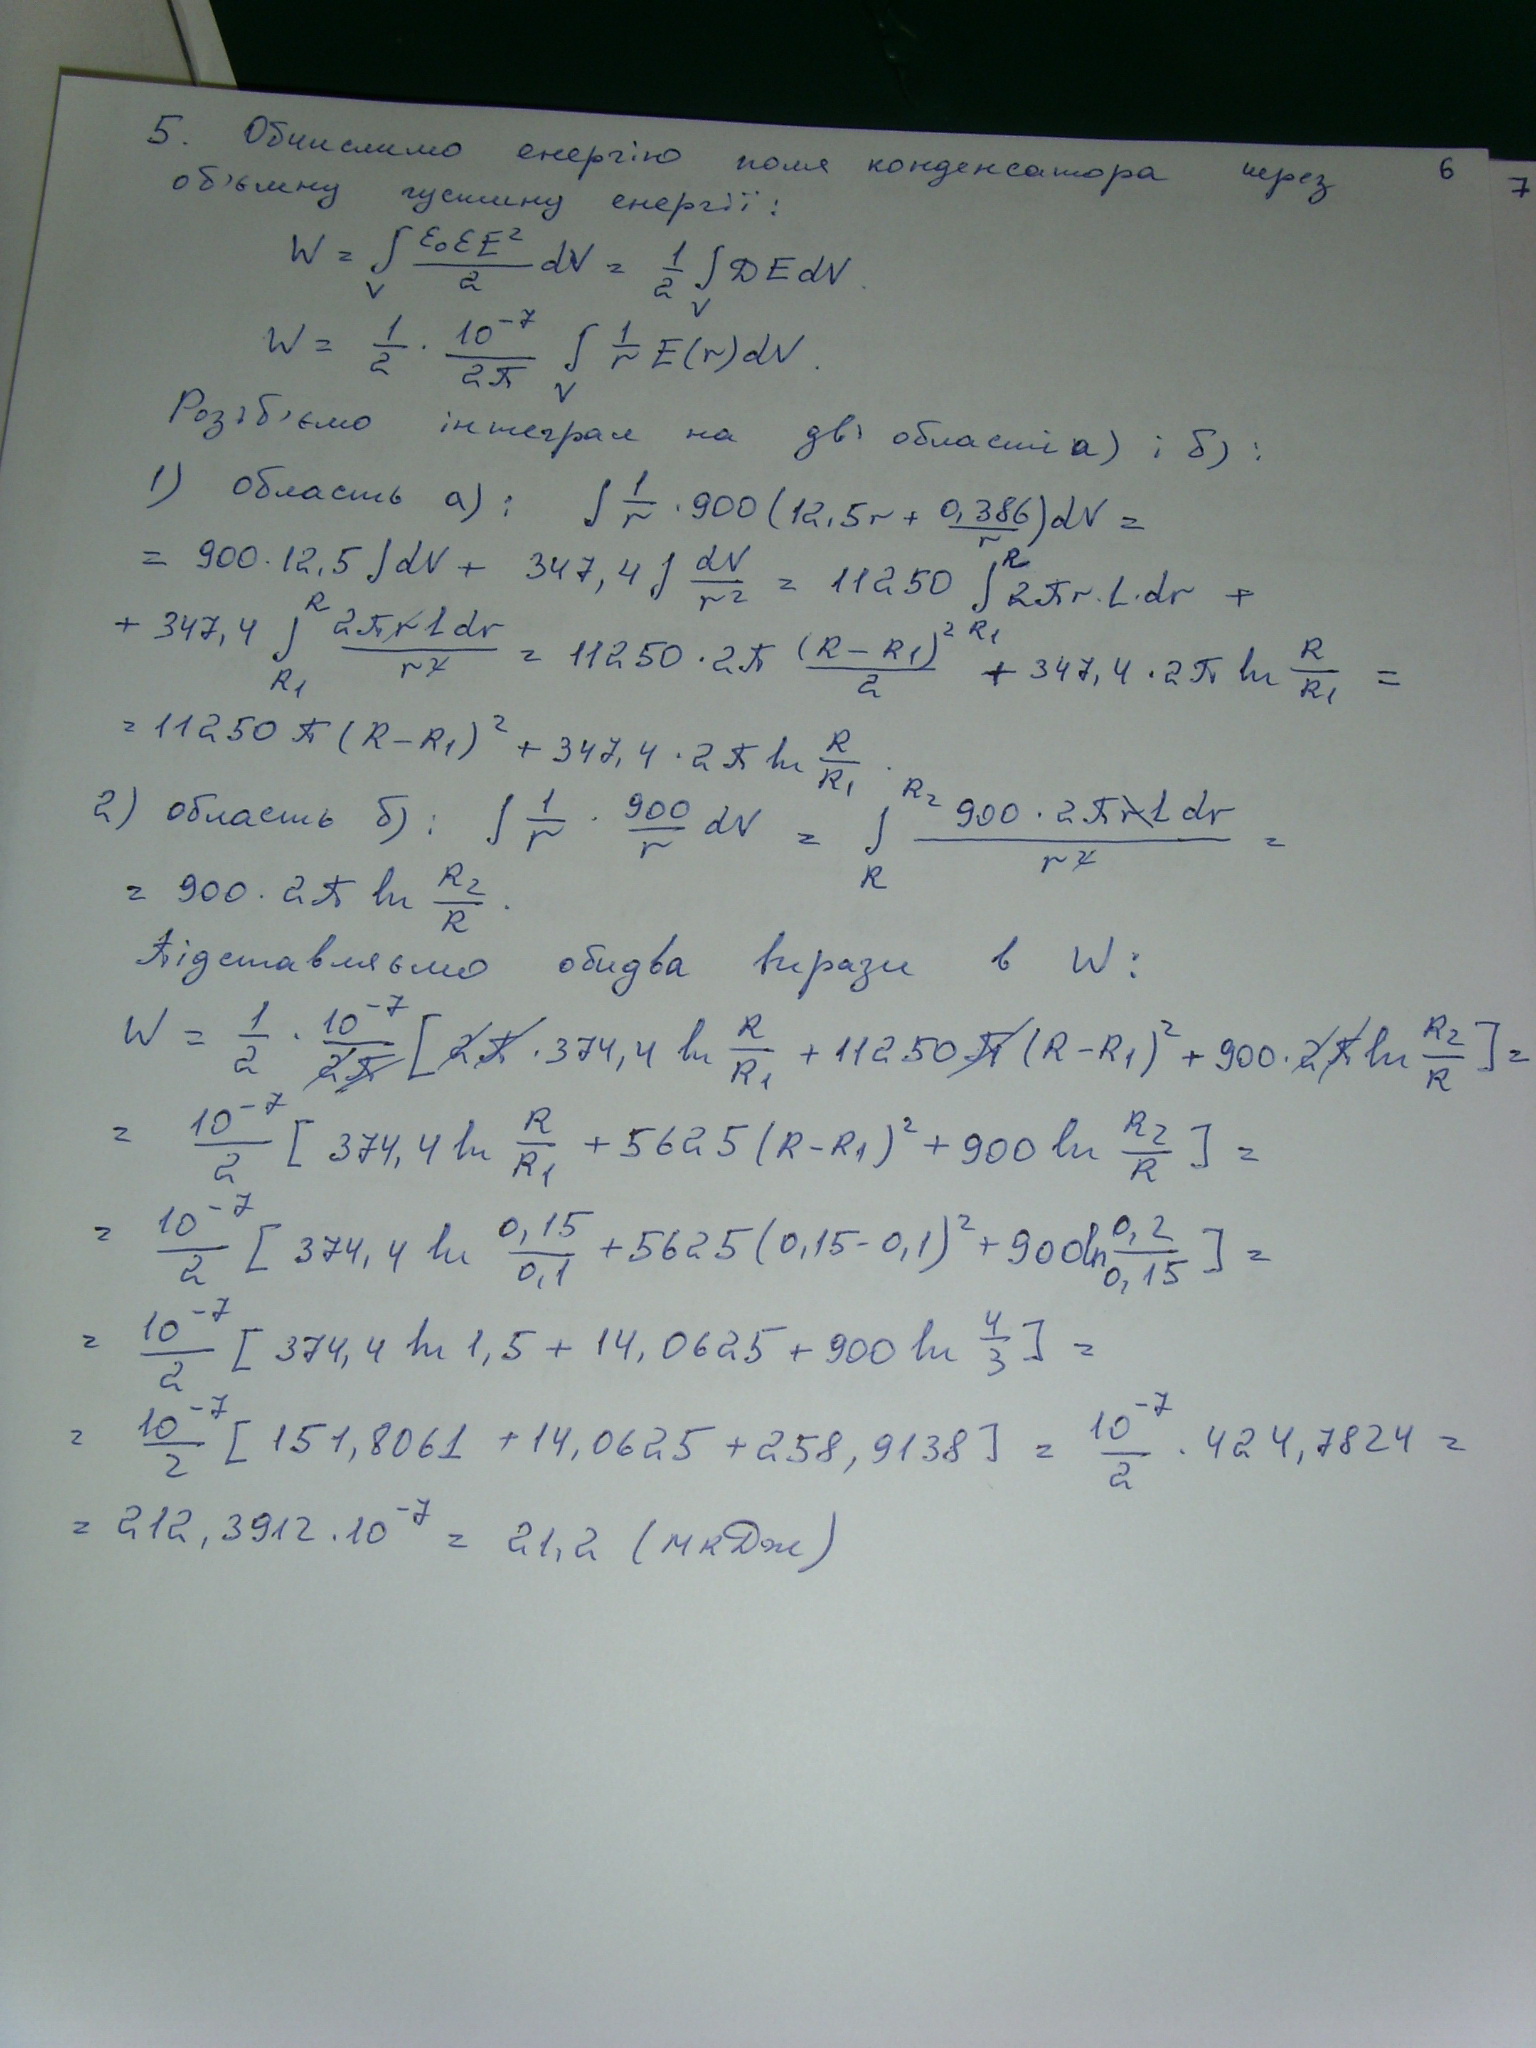 6
7
5. Обчислимо енергію поля конденсатора через
об'ємну густину енергії:
W = ∫_V ε₀εE²/2 dV = 1/2 ∫_V DEdV.
W = 1/2 · 10⁻⁷/2π ∫_V 1/r E(r)dV.
Розіб'ємо інтеграл на дві області а) і б):
1) область а): ∫ 1/r · 900(12,5r + 0,386/r)dV =
= 900·12,5 ∫dV + 347,4 ∫ dV/r² = 11250 ∫_{R₁}^{R} 2πr·1·dr +
+ 347,4 ∫_{R₁}^{R} 2πr1dr/r² = 11250·2π (R−R₁)²/2 + 347,4·2π ln R/R₁ =
= 11250π(R−R₁)² + 347,4·2π ln R/R₁.
2) область б): ∫ 1/r · 900/r dV = ∫_{R}^{R₂} 900·2πr1dr/r² =
= 900·2π ln R₂/R.
Підставляємо обидва вирази в W:
W = 1/2 · 10⁻⁷/2π [2π·374,4 ln R/R₁ + 11250π(R−R₁)² + 900·2π ln R₂/R] =
= 10⁻⁷/2 [374,4 ln R/R₁ + 5625(R−R₁)² + 900 ln R₂/R] =
= 10⁻⁷/2 [374,4 ln 0,15/0,1 + 5625(0,15−0,1)² + 900ln 0,2/0,15] =
= 10⁻⁷/2 [374,4 ln 1,5 + 14,0625 + 900 ln 4/3] =
= 10⁻⁷/2 [151,8061 + 14,0625 + 258,9138] = 10⁻⁷/2 · 424,7824 =
= 212,3912·10⁻⁷ = 21,2 (мкДж)